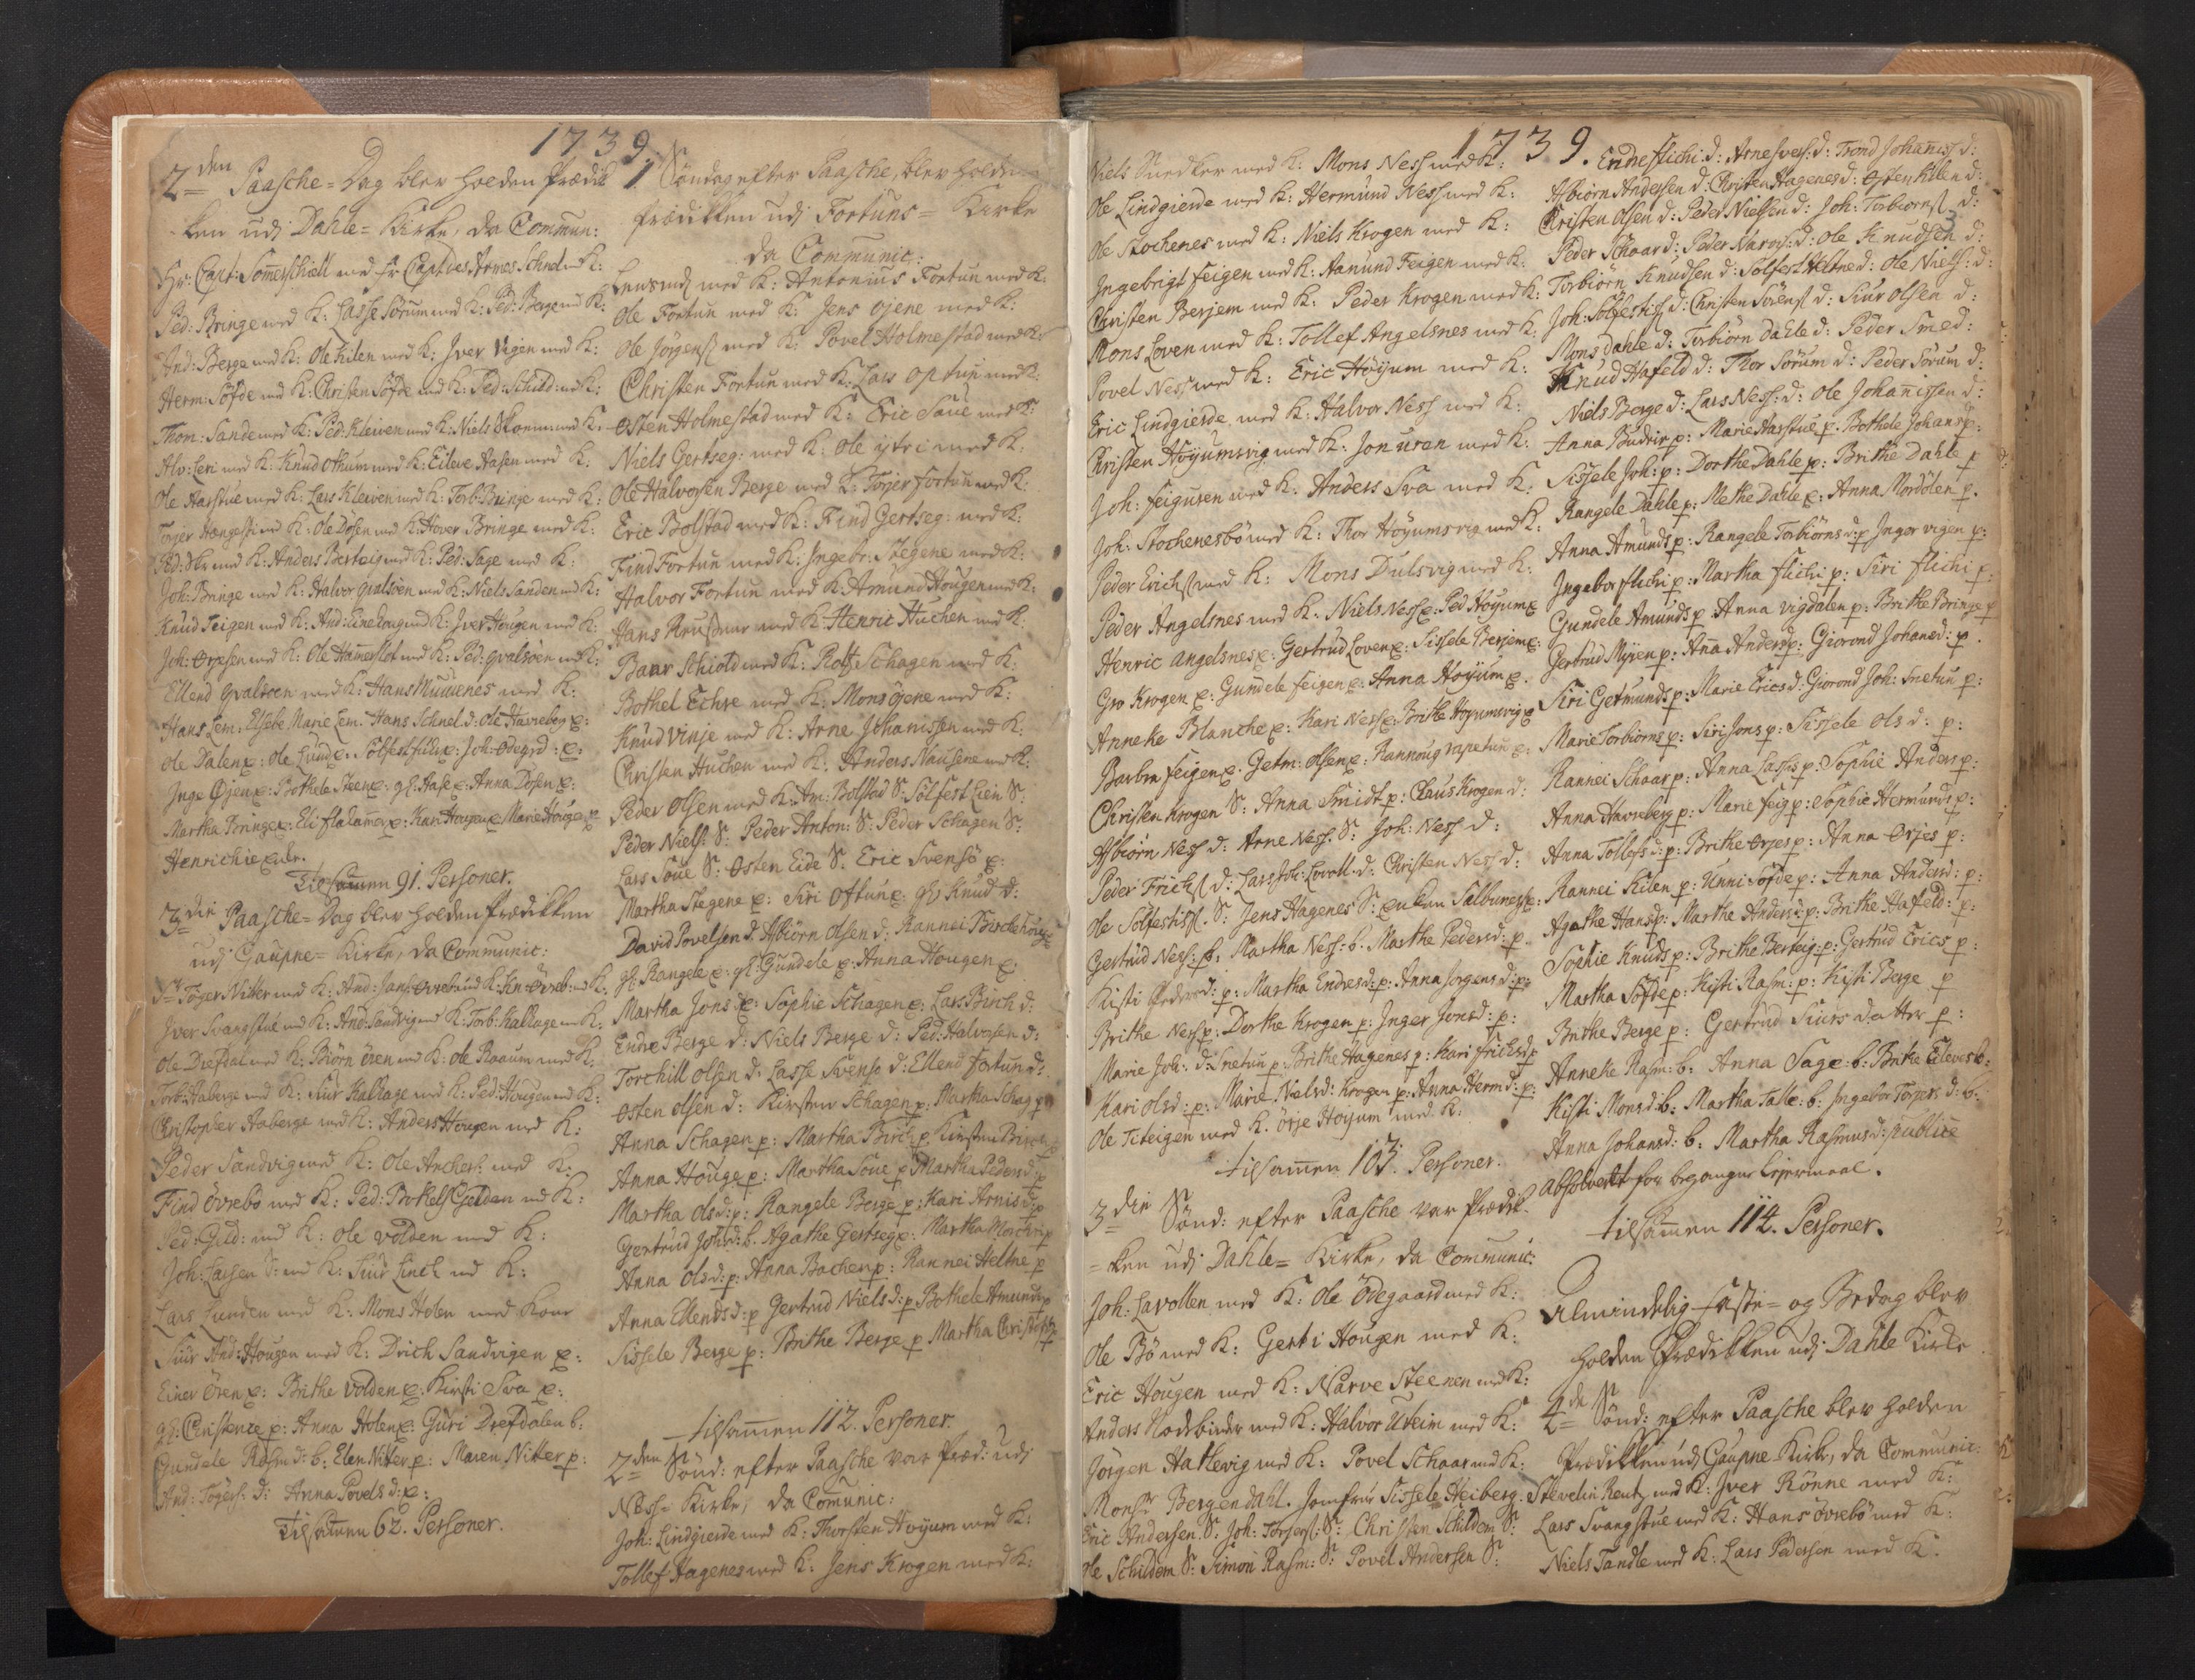 1739.
2den Paasche=Dag blev holden Prædik
ken udj Dahle= Kirke, da Commun:
Hr: Capt: Sommerschiell med Fr: Capt: des Armes Schnel m K:
Ped: Bringe med K: Lasse Sørum med K: Ped: Berge md K:
And: Berge med K: Ole Kilen med K: Jver Vigen med K:
Herm: Söfde med K: Christen Söfde md K: Ped: Schild: md K:
Thom: Sande med K: Ped: Kleiven med K: Niels Skoem med K:
Alv: Leri med K: Knud Othum med K: Eileve Hasen med K.
Ole Harstue med K: Lars Kleiven med K: Torb: Bringe med K:
Torjer Hongesti md K: Ole Dösen md K: Hover Bringe med K:
Ped: med K: Anders Berteig md K: Ped: Sage med K:
Joh: Bringe med K: Halvor qvalsöen md K: Niels Sanden md K:
Knud Teigen med K: And: md K: Jver Hougen med K:
Joh: Orpesen med K: Ole Hamerslot md K: Ped: qvalsöen md K:
Ellend qvalsoen med K: Hans Muuvenes med K:
Hans Lem: Elsebe Marie Lem. Hans Schnel d: Ole Havreberg e:
Ole Dalen e: Ole Lund e: Solfest e: Joh: Ödegrd: e:
Inge Öjen e: Bothele Steen e: gl: Aase e: Anna Dösen e:
Martha Bringe e: Eli flahamer e: Kari Hougen e: Marie Houge e
Henrichie
Tilsamen 91. Personer.
3die Paasche=Dag blev holden Prædikken
udj Gaupne= Kirke, da Communic:
Sr Töger Nitter med K: And: Jans: Övrebö md K: Kn: Övreb: md K.
Jver Svangstue md K: And: Sandvig md K: Torb: Kallage m K:
Ole Drefdal med K: Biörn ören md K: Ole Raaum med K:
Torb: Haberge md K: Siur Kallage med K: Ped: Hougen md K:
Christopher Aaberge med K: Anders Hougen med K:
Peder Sandvig med K: Ole Anchers: med K:
Find övrebö med K: Ped: Gielden md K:
Ped: Gild: md K: Ole volden md K:
Joh: Larsen S: md K: Siur Linck md K:
Lars Lunden med K: Mons Holen med Kone
Siur And: Hougen med K: Drich Sandvigen e:
Einer Ören e: Brithe Volden e: Kirsti Sva e:
gl: Christence p: Anna Holen e: Guri Drefdalen b:
Gundele Rasm d: b: Elen Nitter p: Maren Nitter p:
And: Tögers: d: Anna Povels d: e:
Tilsamen 62. Personer.
1 Söndag efter Paasche, blev holden
Prædikken udj Fortuns= Kirke
da Communic:
Lensmd med K: Antonius Fortun med K:
Ole Fortun med K: Jens öjene med K:
Ole Jörgens: med K: Povel Holmestad med K:
Christen Fortun med K: Lars Optun med K:
Osten Holmestad med K: Eric Saue med K:
Niels Gertseg: med K: Ole ytri med K.
Ole Halvorsen Berge med K: Torjer Fortun med K:
Eric Bolstad med K: Find Gertseg: med K:
Find Fortun med K: Ingebr: Stegene med K:
Halvor Fortun med K: Amund Hougen med K:
Hans med K: Henric Huchen md K.
Baar Schiold med K: Rolf Schagen med K:
Bothel Echre med K: Mons öjene med K:
Knud Vinje med K: Arne Johanissen med K:
Christen Huchen med K: Anders Nausene md K:
Peder Olsen med K: Am: Bolstad S: Solfest Lien S:
Peder Niels: S: Peder Anton: S: Peder Schagen S:
Lars Soue S: Osten Eide S: Eric Svensö e:
Martha Stegene e: Siri Oftun e: gl: Knud d:
David Povelsen d: Asbiörn Olsen d: Rannei Birchehoug e
gl: Rangele e: gl: Gundele e: Anna Hougen e:
Martha Jons d e: Sophie Schagen e: Lars Birch d:
Endre Berge d: Niels Berge d: Ped: Halvorsen d:
Torchill Olsen d: Lasse Svensö d: Ellend Fortun d:
Osten Olsen d: Kirsten Schagen p: Martha Schag p
Anna Schagen p: Martha Birch p: Kirsten
Anna Houge p: Martha Soue p Martha Peders d: p
Martha Ols d: p: Rangele Berge p: Kari Arnis d: p
Gertrud Joh: d: b. Agathe Gertseg p: Martha p
Anna Ols d: p: Anna Bachen p: Rannei Heltne p
Anna Ellends d: p Gertrud Niels d: p Bothele Amunds p
Sissele Berge p: Brithe Berge p Martha Christophs
tilsamen 112. Personer.
2den Sönd: efter Paasche var Præd: udj
Ness= Kirke, da Comunic:
Joh: Lindgierde med K: Thorsten Hoyum med K:
Tollef Hagenes med K: Jens Krogen med K:
1739.
3
Niels Snedker med K: Mons Ness med K:
Ole Lindgierde med K: Hermund Ness med K:
Ole Stochenes med K: Niels Krogen med K:
Ingebrigt Feigen med K: Aamund Feigen med K:
Christen Berjem med K: Peder Krogen med K:
Mons Loven med K: Tollef Angelsnes med K:
Povel Ness med K: Eric Höyum med K:
Eric Lindgierde med K: Halvor Ness med K:
Christen Höyumsvig med K: Jon uren med K:
Joh: feiguren med K: Anders Sva med K:
Joh: Stochenesbö med K: Thor Höyumsvig med K:
Peder Erichs: med K: Mons Dulsvig med K:
Peder Angelsnes med K: Niels Ness e: Ped Höyum e
Henric Angelsnes e: Gertrud Loven e: Sissele Berjem e:
Gro Krogen e: Gundele feigen e: Anna Höyum e.
Anneke Blanche e: Kari Ness e: Brithe Höyumsvig e
Barbra feigen e: Getm: Olsen e: Rannoug e:
Christen Krogen S: Anna Smidt p: Claus Krogen d:
Asbiörn Ness d: Arne Ness: S: Joh: Ness d:
Peder Frichs: d: Lars Joh: Lovoll d: Christen Ness d:
Ole Solfestis: S: Jens Hagenes S: enken
Gertrud Ness: p: Martha Ness: b: Marthe Peders d: p.
Kisti Peders d: p: Martha Endres d: p: Anna Jorgens d: p:
Brithe Ness p: Dorthe Krogen p: Inger Jons d: p:
Marie Joh: d: Snetun p: Brithe Hagenes p: Kari Frichs d p
Kari Ols d: p: Marie Niels d: Krogen p: Anna Herm d: p:
Ole Teteigen med K. Örje Höyum med K:
tilsamen 103. Personer.
3die Sönd: efter Paasche var Prædik=
=ken udj Dahle= Kirke, da Communic:
Joh: Lavollen med K: Ole Ödegaard med K:
Ole Bö med K: Gerti Hougen med K:
Eric Hougen med K: Narve Steenen md K:
Anders Nodebinder med K: Halvor Uteim med K:
Jörgen Hatlevig med K: Povel Schaar md K:
Monsr Bergendahl. Jomfru Sissele Heiberg.
Eric Andersen S: Joh: Torjers: S: Christen Schildem S:
Ole Schildem S: Simon Rasm: S: Povel Andersen S:
Endre flichi d: Arne d: Trond Johaniss d:
Asbiörn Andersen d: Christen Hagenes d: Osten Kilen d:
Christen Olsen d: Peder Nielsen d: Joh: Torbiörns: d:
Peder Schaar d: Peder d: Ole Knudsen d:
Torbiörn Knudsen d: Solfest Heltne d: Ole Niels: d:
Joh: Solfestis: d: Christen Sörens: d: Siur Olsen d:
Mons Dahle d: Torbiörn Dahle d: Peder Smed:
Knud Hafeld d: Thor Sörum d: Peder Sörum d:
Niels Berge d: Lars Ness: d: Ole Johanissen d:
Anna p: Marie Harstue p. Bothele Johans p:
Sissele Joh: p: Dorthe Dahle p: Brithe Dahle p
Rangele Dahle p: Methe Dahle p: Anna Mordölen p.
Anna Amunds p: Rangele Torbiörns d: p Inger vigen p:
Ingebor flichi p: Martha flichi p: Siri flichi p:
Gundele Amunds p Anna Vigdalen p: Brithe Bringe p
Gertrud Myren p: Ana Anders d p: Giorond Johans d: p.
Siri Getmunds p: Marie Erics d: Giorond Joh: Snetun p:
Marie Torbiörns p: Siri Jons p: Sissele Ols d: p:
Rannei Schaar p: Anna Lasses p: Sophie Anders p:
Anna Havreberg p: Marie feig p: Sophie Hermunds p:
Anna Tollefs d: p: Brithe Orjes p: Anna Orjes p:
Rannei Kilen p: Unni Söfde p: Anna Anders d: p:
Agathe Hans p: Marthe Anders d: p: Brithe Hafeld: p:
Sophie Knuds p: Brithe Berteig: p: Gertrud Erics p:
Martha Söfde p: Kisti Rasm: p: Kisti Berge p
Brithe Berge p: Gertrud Siurs datter p:
Anneke Rasm: b: Anna Sage: b: Brithe Eileves b:
Kisti Mons d: b: Martha Talle: b: Ingebor Torjers d: b:
Anna Johans d: b: Martha Rasmus d: publice
Absolvert for begangne Lejermaal.
tilsamen 114. Personer.
Almindelig Faste= og Bedag blev
holden Prædikken udj Dahle Kirke
4de Sönd: efter Paasche blev holden
Prædikken udj Gaupne Kirke, da Communic:
Stevelin Reutz med K: Jver Rönne med K:
Lars Svangstue med K: Hans övrebö med K:
Niels Tandle med K: Lars Pedersen med K.